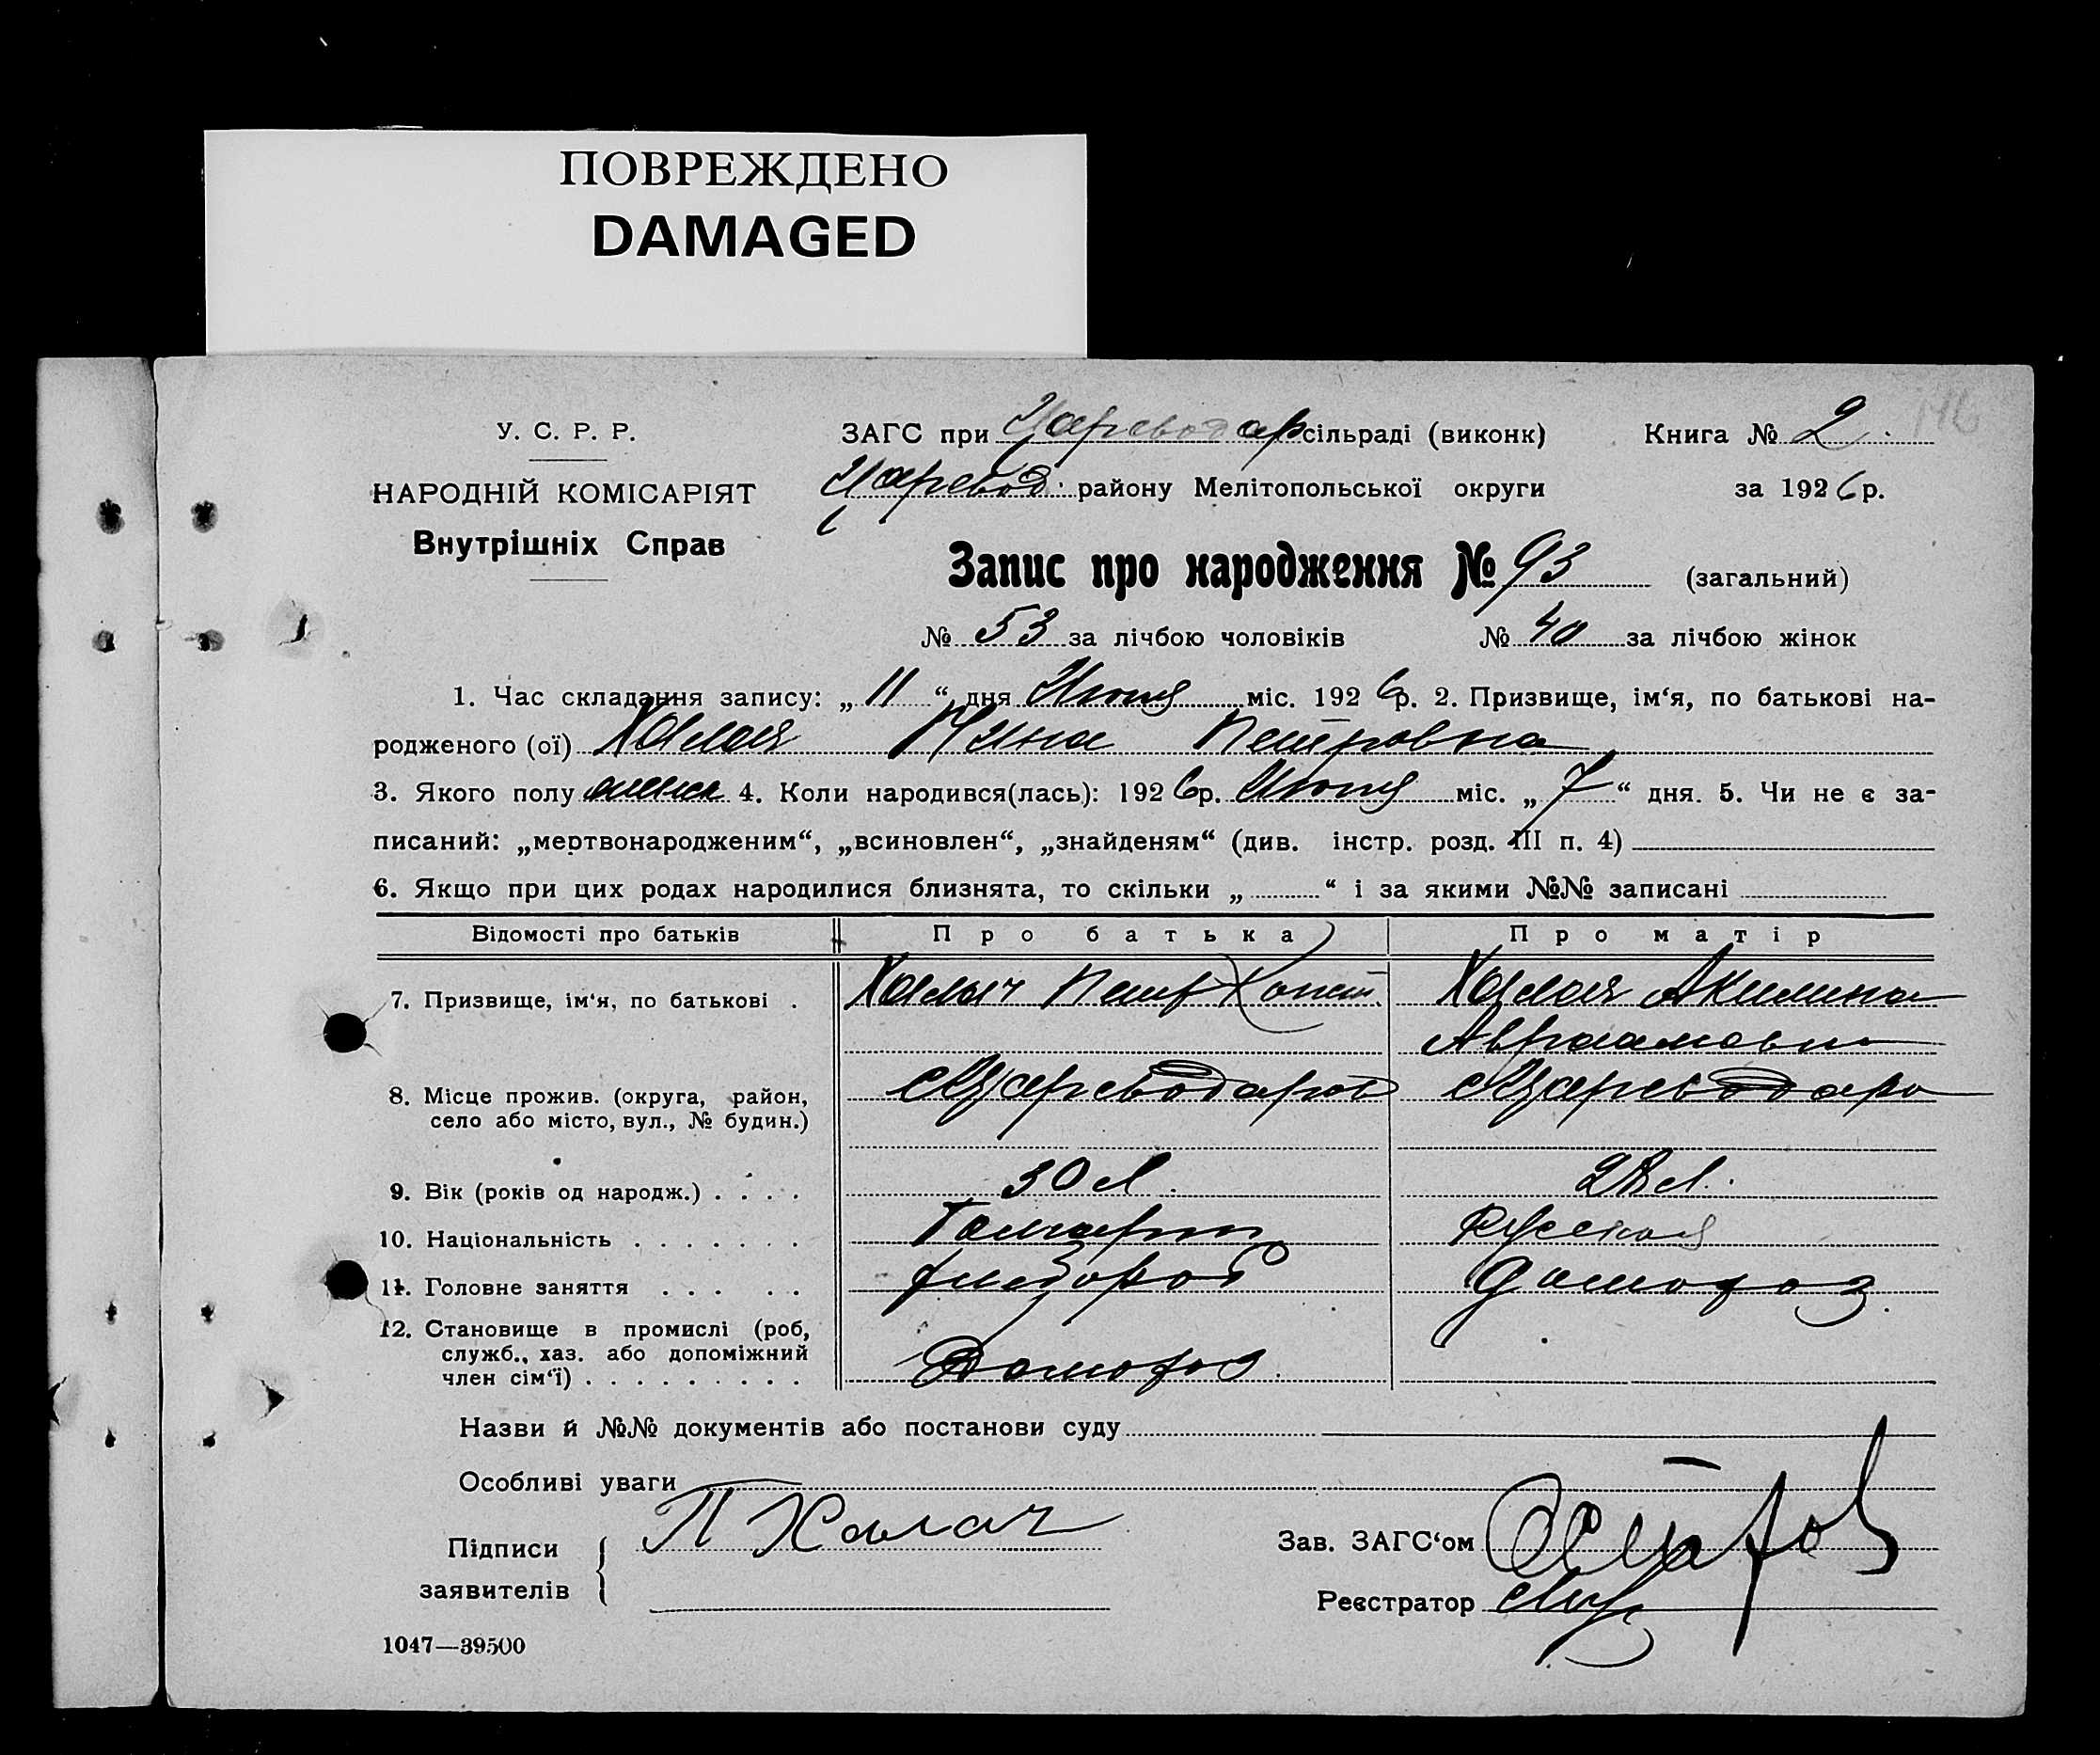 ПОВРЕЖДЕНО
DAMAGED
146
У. С. Р. Р.
НАРОДНІЙ КОМІСАРІЯТ
Внутрішніх Справ
ЗАГС при Цареводар сільраді (виконк) Книга № 2.
Царевод. району Мелітопольської округи за 1926 р.
Запис про народження № 93 (загальний)
№ 53 за лічбою чоловіків № 40 за лічбою жінок
1. Час складання запису: „ 11 “ дня міс. 1926 р. 2. Призвище, ім‘я, по батькові на-
родженого (ої) Халая Нина Петровна
3. Якого полу женск 4. Коли народився(лась): 1926 р. міс. „ 7 “ дня. 5. Чи не є за-
писаний: „мертвонародженим“, „всиновлен“, „знайденям“ (див. інстр. розд. III п. 4)
6. Якщо при цих родах народилися близнята, то скільки „ “ і за якими №№ записані
Відомості про батьків Про батька Про матір
7. Призвище, ім‘я, по батькові . Петр Конст. Халая Акилина
Авраамовн
8. Місце прожив. (округа, район, с Цареводаров с Цареводаро
село або місто, вул., № будин.)
9. Вік (років од народж.) . . . . 30 л. 28 л.
10. Національність . . . . . . . Русская
11. Головне заняття . . . . . хлебороб домохоз.
12. Становище в промислі (роб, служб., хаз. або допоміжний член сім‘ї) . . . . . . . . . Домохоз.
Назви й №№ документів або постанови суду
Особливі уваги
Підписи
заявителів П Халач
Зав. ЗАГС‘ом
Реєстратор
1047—39500